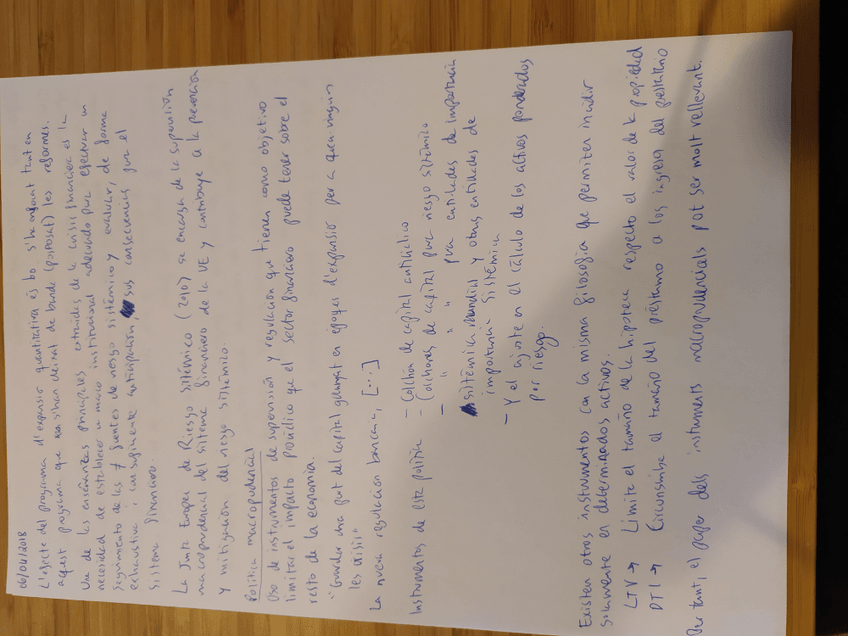 06/04/2018
L'efecte del programa d'expansió quantitativa és bo s'ha enfocat tant en
aquest programa que s'han deixat de banda (posposat) les reformes.
Una de las enseñanzas principales extraídas de la crisis financiera es la
necesidad de establecer un marco institucional adecuado para efectuar un
seguimiento de las ≠ fuentes de riesgo sistémico y evaluar, de forma
exhaustiva y con suficiente anticipación, sus consecuencias para el
sistema financiero.
La Junta Europea de Riesgo Sistémico (2010) se encarga de la supervisión
macroprudencial del sistema financiero de la UE y contribuye a la prevención
y mitigación del riesgo sistémico.
Política macroprudencial
Uso de instrumentos de supervisión y regulación que tienen como objetivo
limitar el impacto periódico que el sector financiero puede tener sobre el
resto de la economía.
"Guardar una part del capital guanyat en èpoques d'expansió per a quan vinguin
les crisis"
La nueva regulación bancaria, [...]
Instrumentos de esta política - Colchón de capital anticíclico
- Colchones de capital para riesgo sistémico
- " " " para entidades de importancia
sistémica mundial y otras entidades de
importancia sistémica
- Y el ajuste en el cálculo de los activos ponderados
por riesgo.
Existen otros instrumentos con la misma filosofía que permiten incidir
solamente en determinados activos.
LTV → Limita el tamaño de la hipoteca respecto el valor de la propiedad
DTI → Circunscribe el tamaño del préstamo a los ingresos del prestatario
Per tant, el paper dels instruments macroprudencials pot ser molt rellevant.